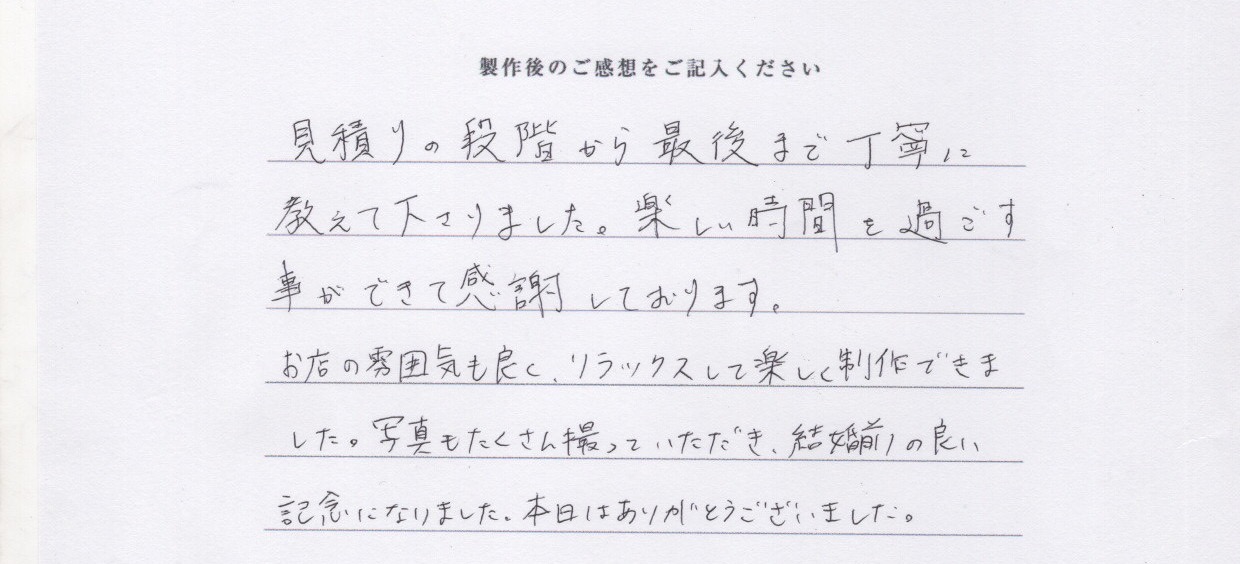 製作後のご感想をご記入ください
見積りの段階から最後まで丁寧に
教えて下さりました。楽しい時間を過ごす
事ができて感謝しております。
お店の雰囲気も良く、リラックスして楽しく制作できま
した。写真もたくさん撮っていただき、結婚前の良い
記念になりました。本日はありがとうございました。